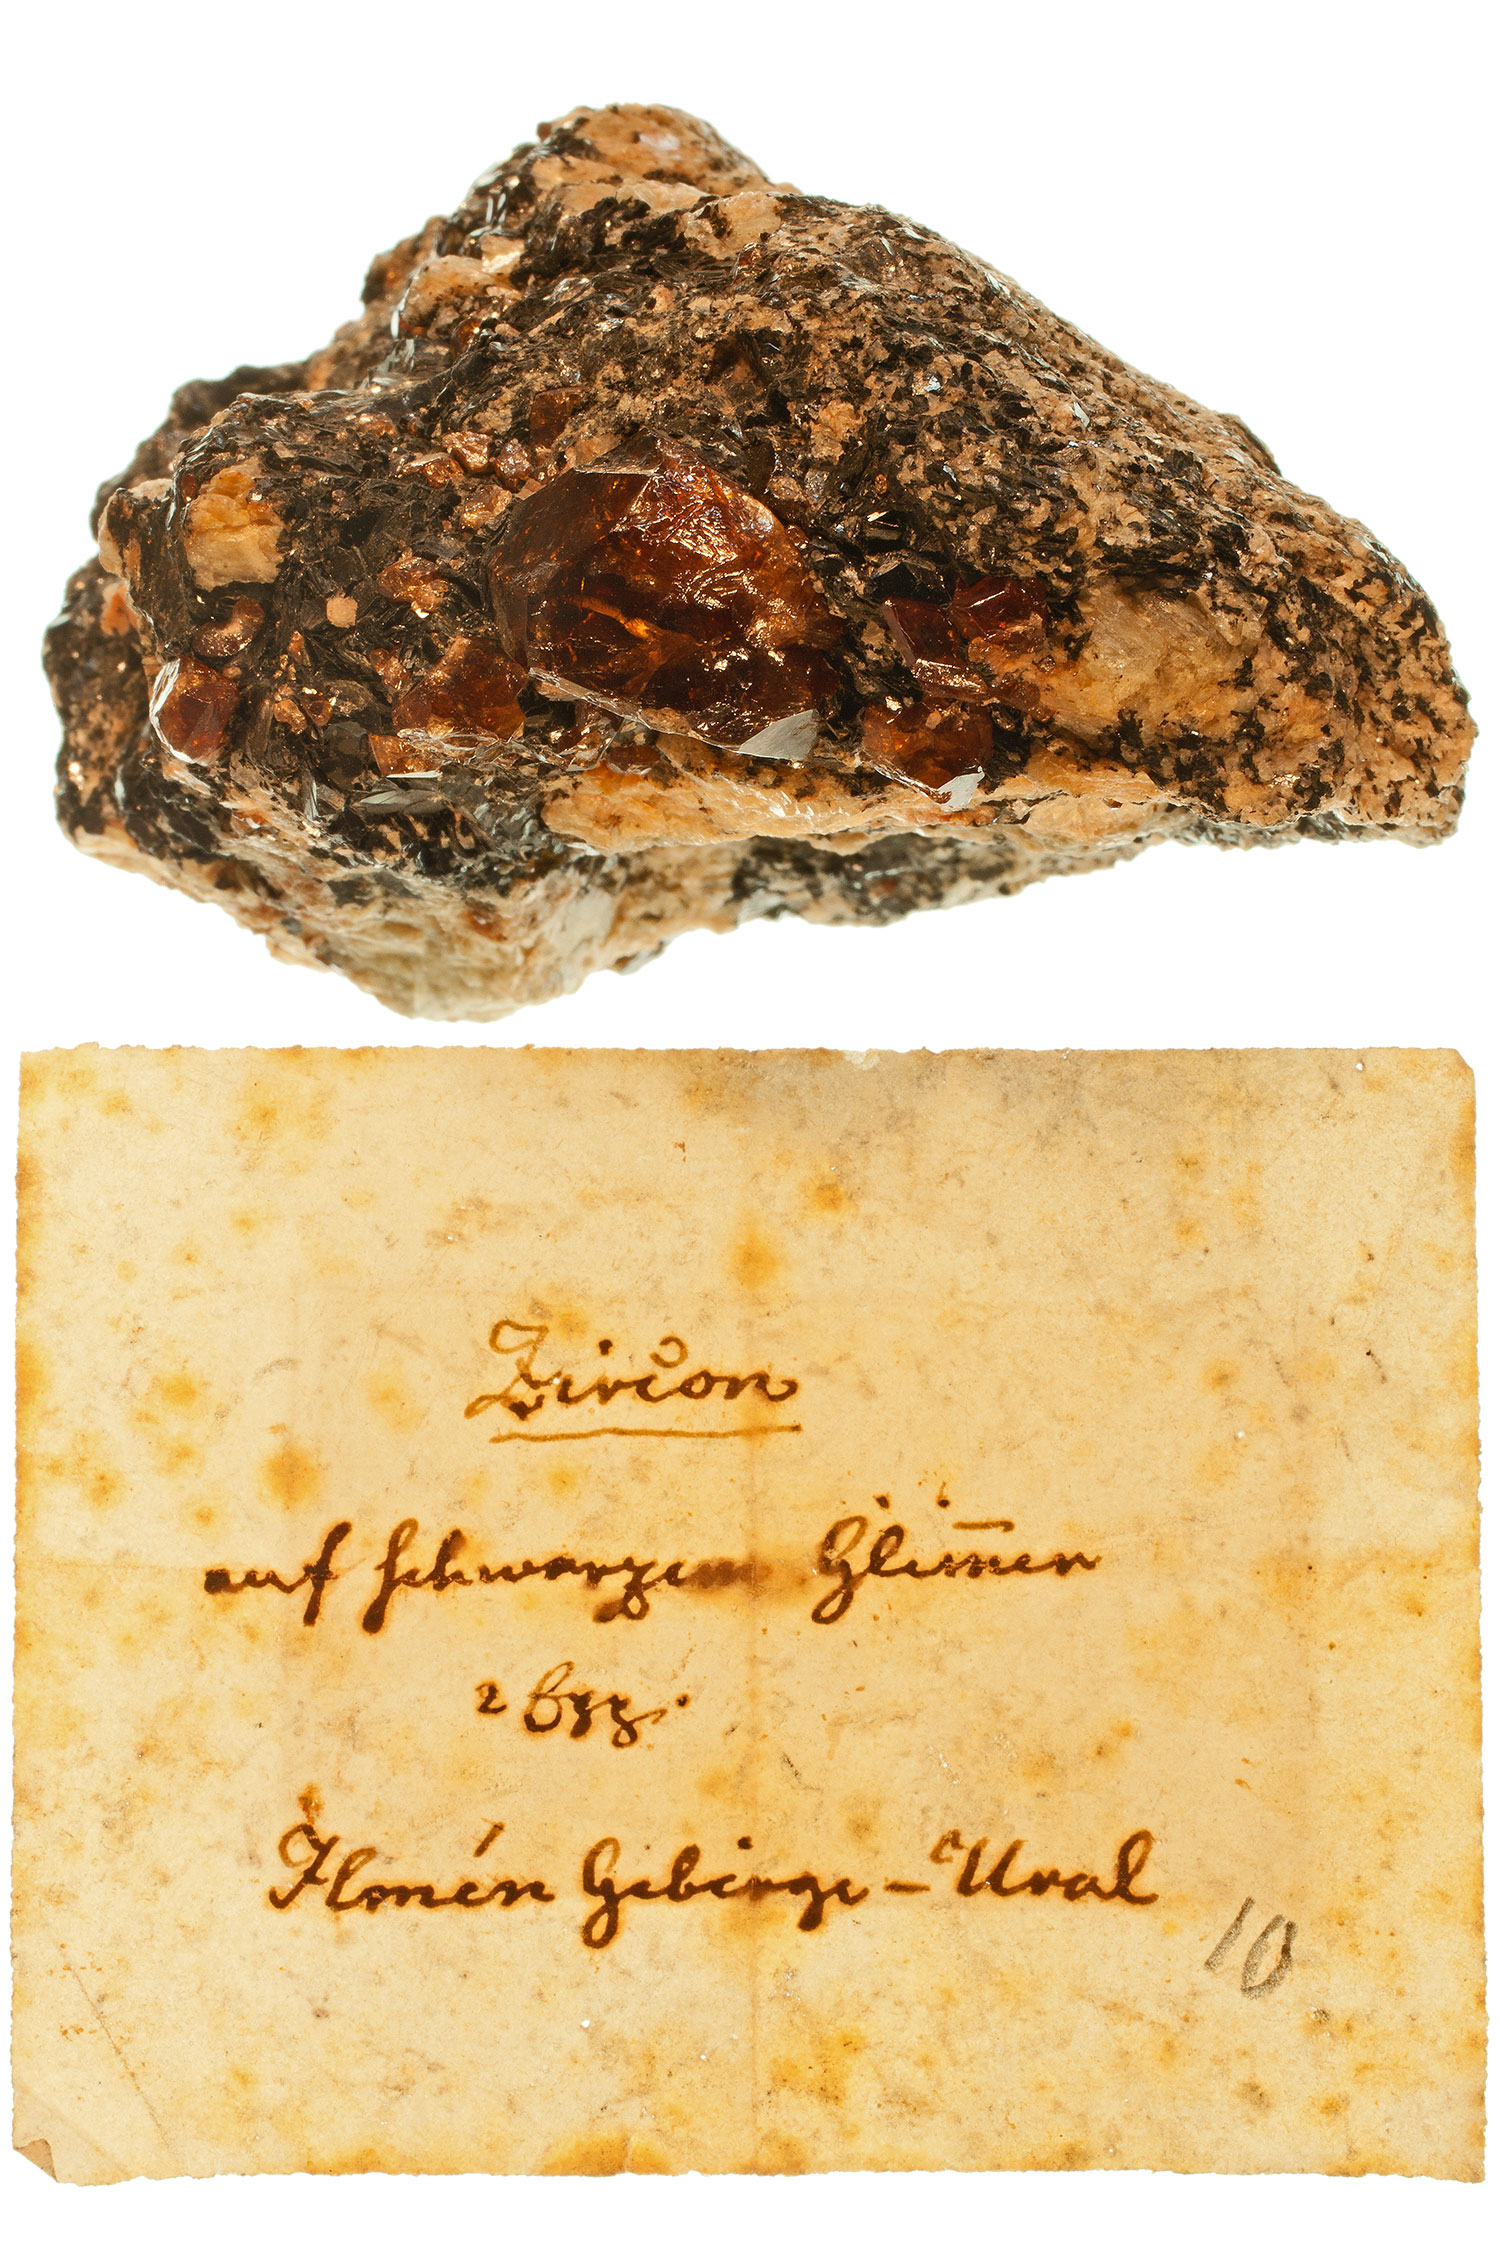 Zircon
auf schwarzem Glim̄er
2
Ilmén Gebirge - Ural
10